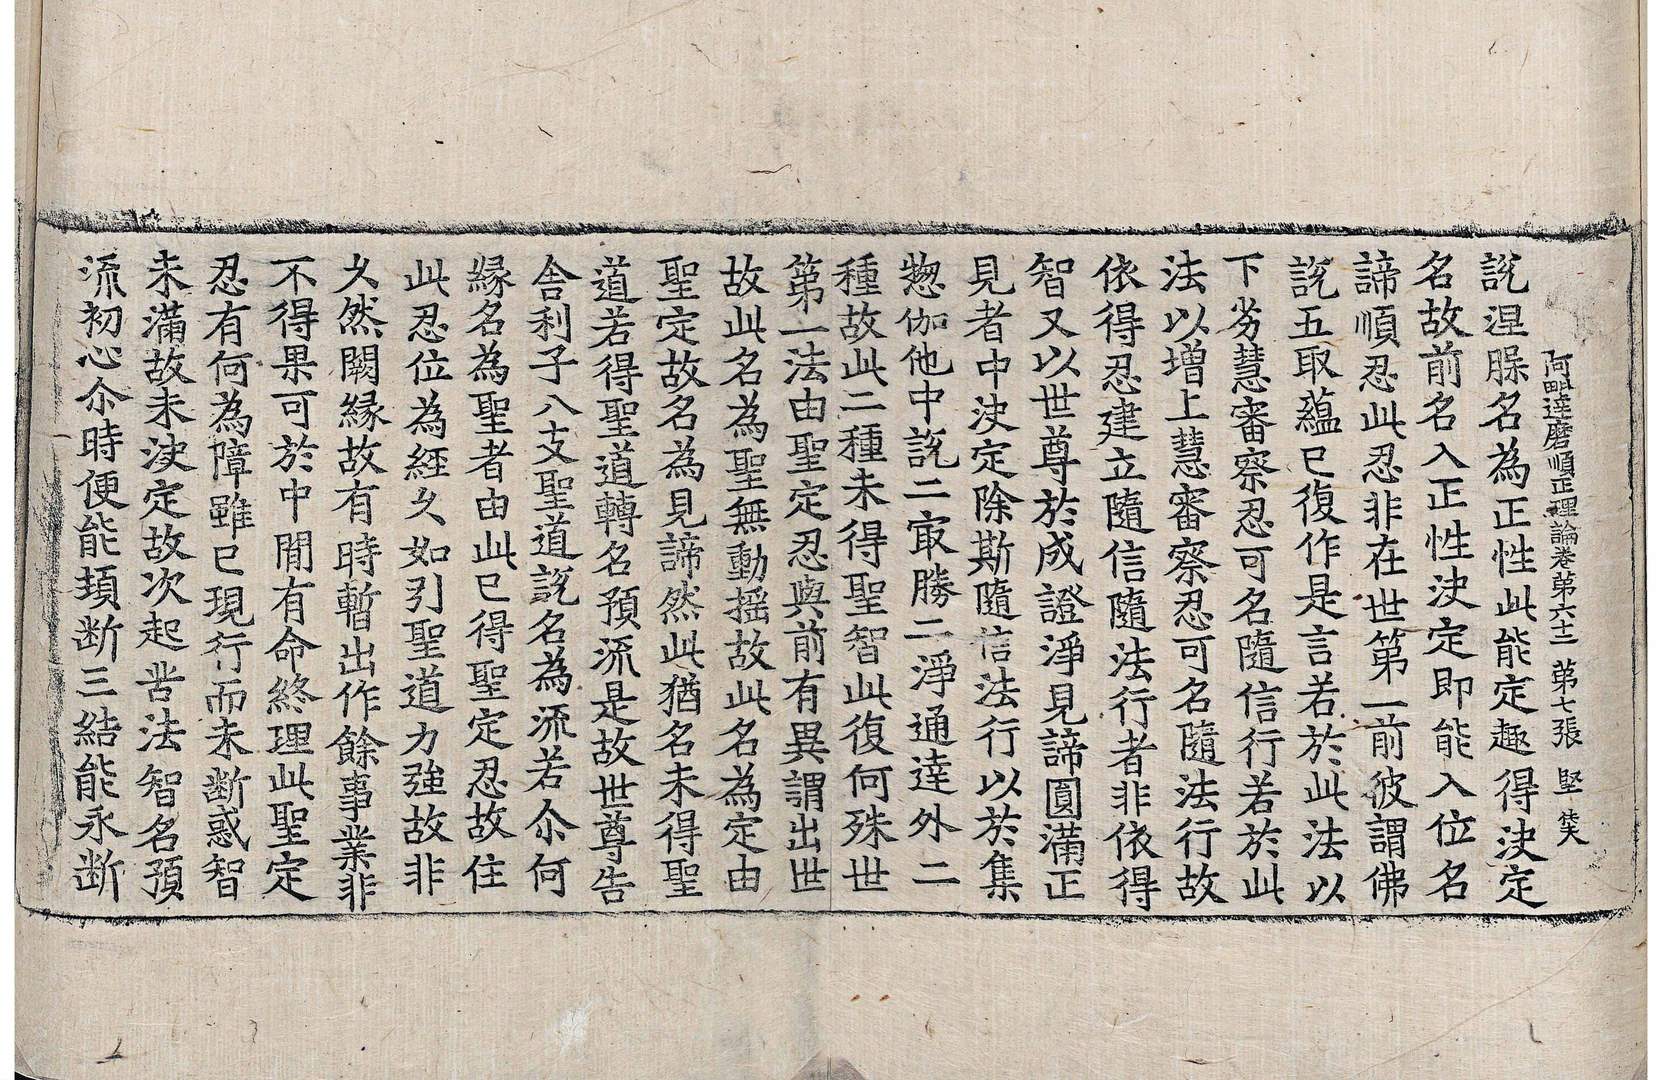 阿毗達磨順正理論卷第六十二 第七張 堅
說涅槃名為正性此能定趣得決定
名故前名入正性決定即能入位名
諦順忍此忍非在世第一前彼謂佛
說五取蘊已復作是言若於此法以
下劣慧審察忍可名隨信行若於此
法以增上慧審察忍可名隨法行故
依得忍建立隨信隨法行者非依得
智又以世尊於成證淨見諦圓滿正
見者中決定除斯隨信法行以於集
惣伽他中說二㝡勝二淨通達外二
種故此二種未得聖智此復何殊世
第一法由聖定忍與前有異謂出世
故此名為聖無動搖故此名為定由
聖定故名為見諦然此猶名未得聖
道若得聖道轉名預流是故世尊告
舍利子八支聖道說名為流若尒何
緣名為聖者由此已得聖定忍故住
此忍位為經久如引聖道力強故非
久然闕緣故有時暫出作餘事業非
不得果可於中間有命終理此聖定
忍有何為障雖已現行而未斷惑智
未滿故未決定故次起苦法智名預
流初心尒時便能頓斷三結能永斷